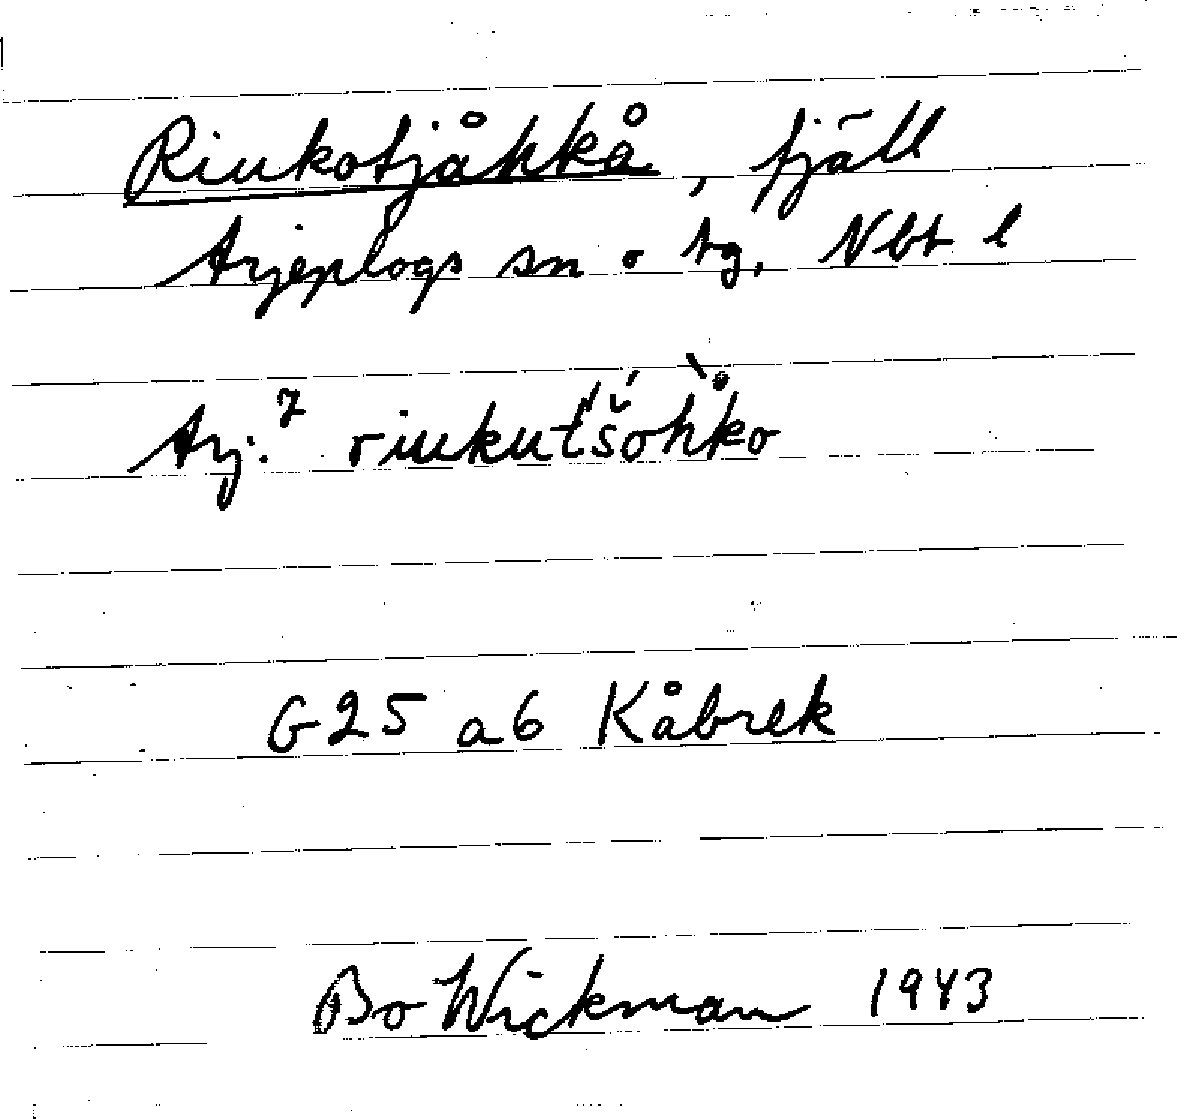 Riukotjåhkå, fjäll
Arjeplogs sn o tg, Nbt l
Arj.⁷ riukut́š́ohk̀o
G25 a6 Kåbrek
Bo Wickman 1943